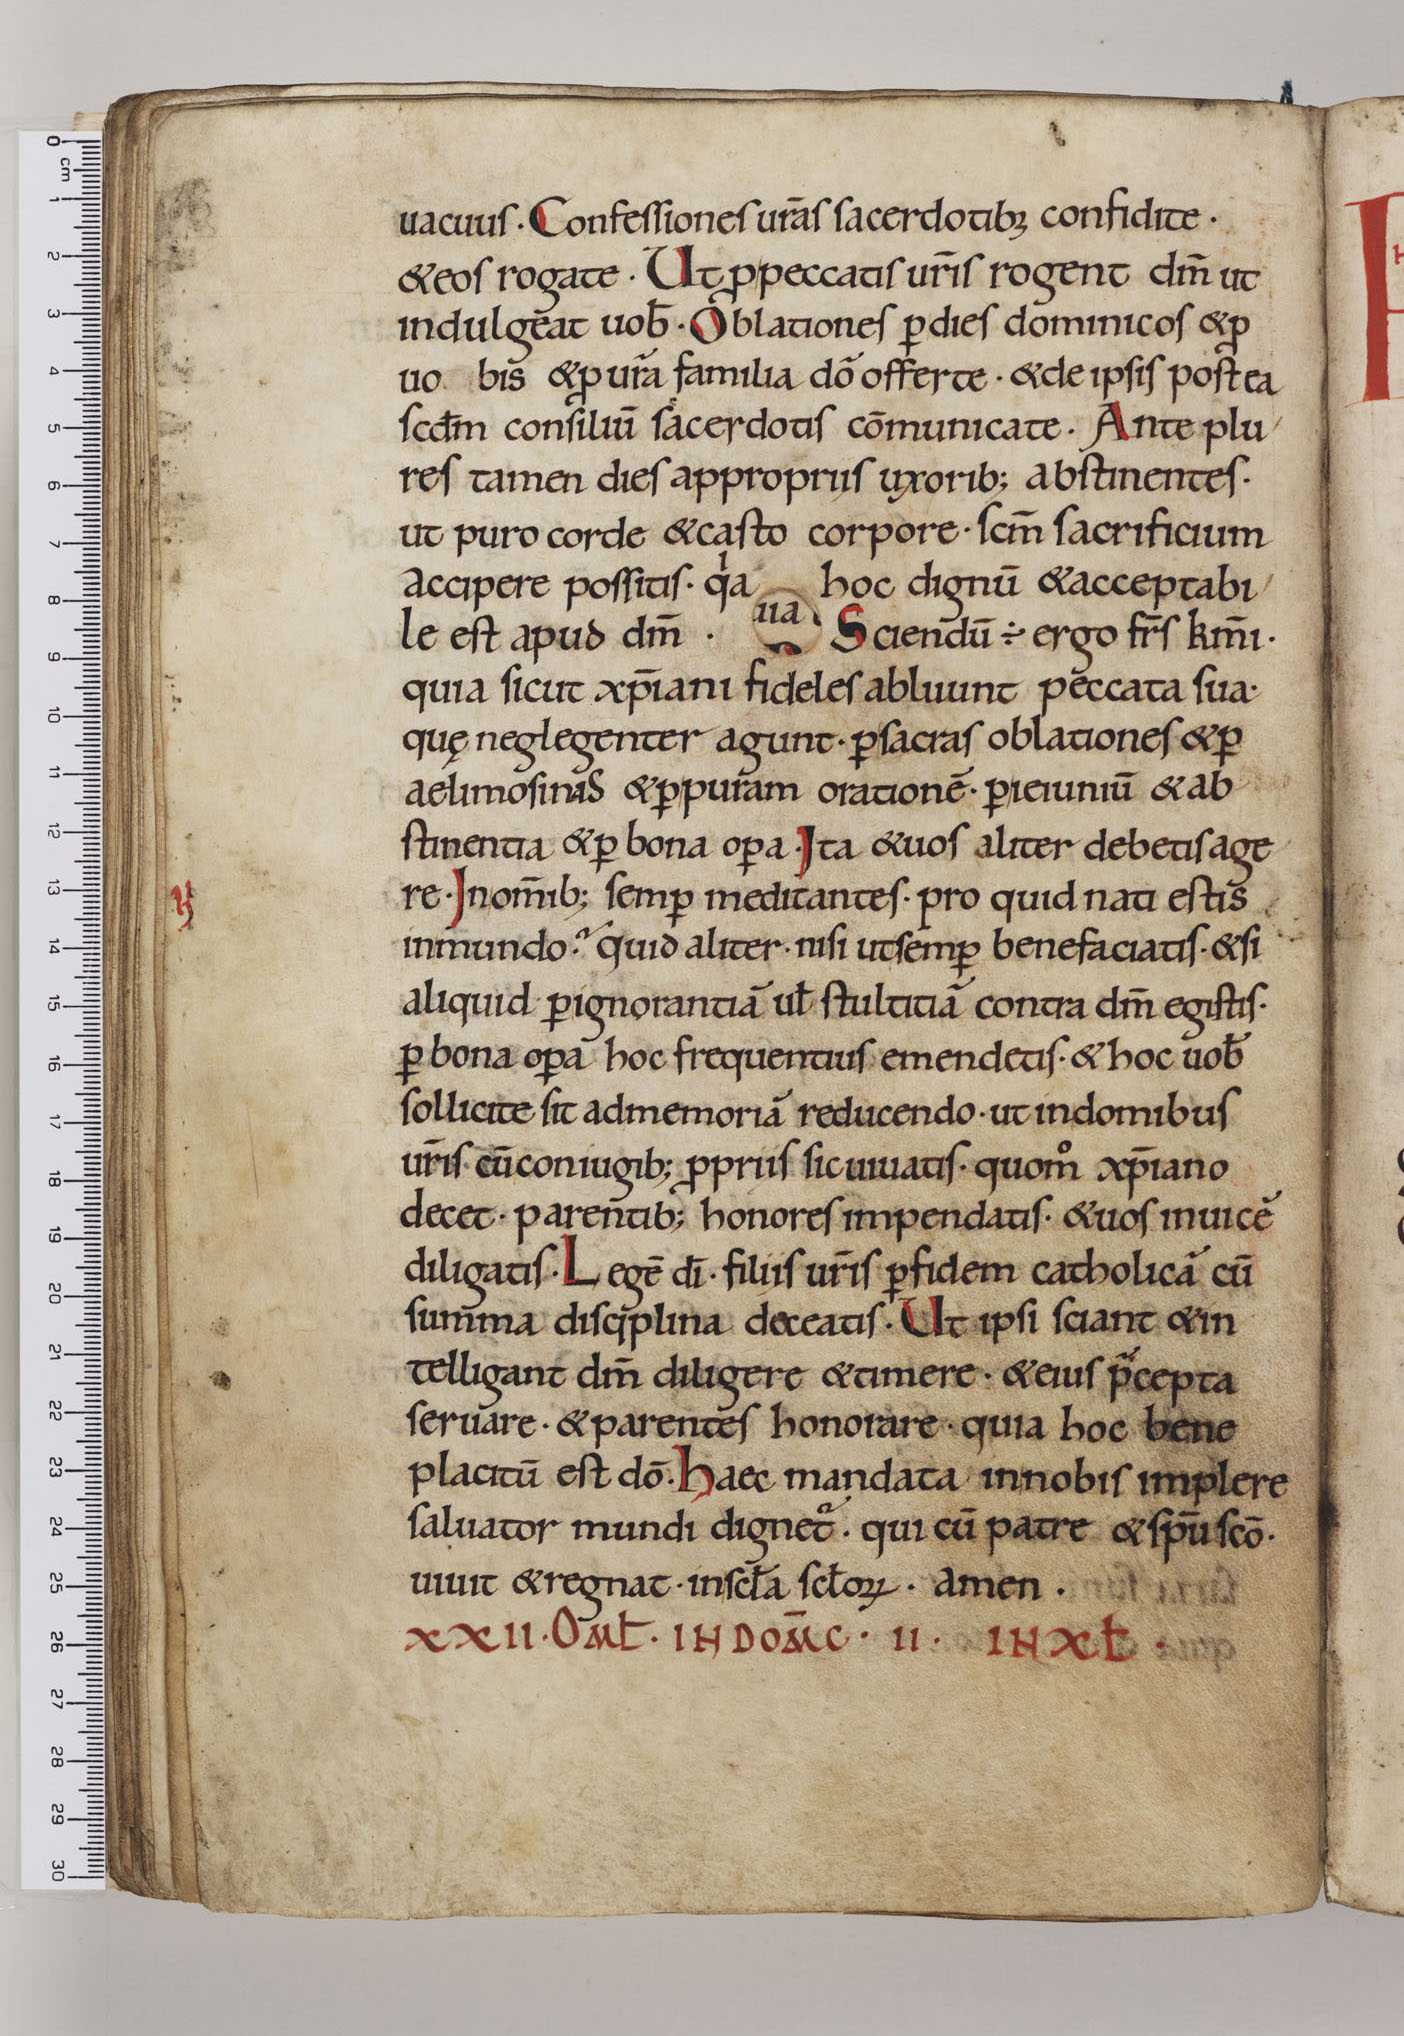 uacuus · Confessiones urās sacerdotibꝫ confidite ·
&eos rogate · Ut ꝓpeccatis ur̄is rogent dm̄ ut
indulgeat uob̄ · Oblationes ꝑdies dominicos &ꝓ
uo bis &ꝓ ur̄a familia dō offerte · &de ipsis postea
scdm̄ consiliū sacerdotis cōmunicate · Ante plu
res tamen dies appropriis uxorib; abstinentes ·
ut puro corde &casto corpore · scm̄ sacrificium
accipere possitis · qͥa hoc dignū &acceptabi
le est apud dm̄ · Sciendū ÷ ergo fr̄s km̄i ·
ua
quia sicut xp̄iani fideles abluunt peccata sua ·
quę neglegenter agunt · ꝑsacras oblationes &ꝑ
aelimosinas &ꝑpuram orationē · ꝑieiuniū &ab
stinentia &ꝑ bona oꝑa · Ita &uos aliter debetis age
re · Inom̄ib; semꝑ meditantes · pro quid nati estis
inmundo? quid aliter · nisi utsemꝑ benefaciatis · &si
aliquid ꝑignorantiā ul̄ stultitiā contra dm̄ egistis ·
ꝑ bona oꝑa hoc frequentius emendetis · &hoc uob̄
sollicite sit admemoriā reducendo · ut indomibus
ur̄is cūconiugib; ꝓpriis sicuiuatis · quom̊ xp̄iano
decet · parentib; honores impendatis · &uos inuicē
diligatis · Legē dī · filiis ur̄is ꝑfidem catholicā cū
summa disciplina doceatis · Ut ipsi sciant &in
telligant dm̄ diligere &timere · &eius p̄cepta
seruare · &parentes honorare · quia hoc bene
placitū est dō · Haec mandata innobis implere
saluator mundi dignet᷑ · qui cū patre &sp̄u scō ·
uiuit &regnat · inscl̄a scl̄oꝝ · amen ·
XXII · OML̄ · IN DOM̄C · II · IN XL̄ ·